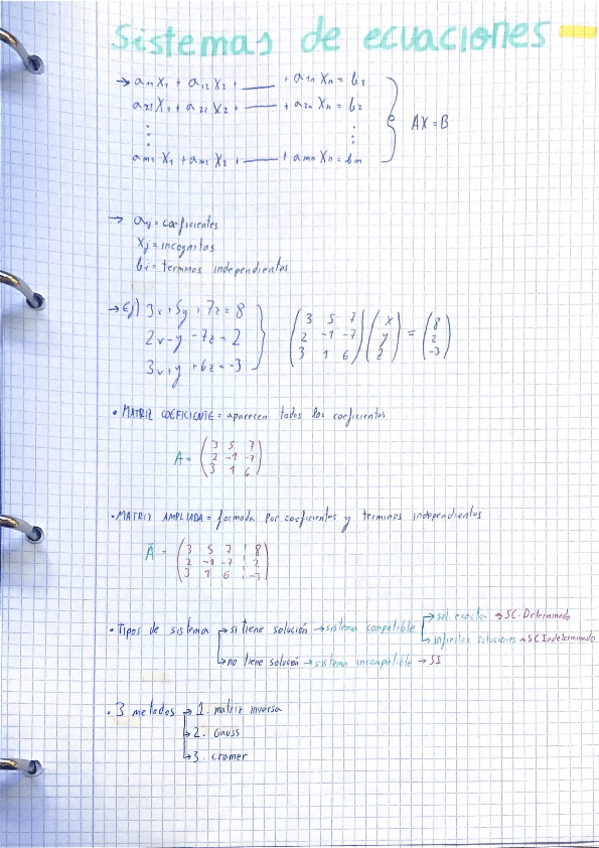 Sistemas de ecuaciones
→ a₁₁x₁ + a₁₂x₂ + ___ + a₁ₙxₙ = b₁
a₂₁x₁ + a₂₁x₂ + ___ + a₂ₙxₙ = b₂
⋮ ⋮
aₘ₁x₁ + aₘ₂x₂ + ___ + aₘₙxₙ = bₘ
AX = B
→ aᵢⱼ = coeficientes
Xⱼ = incognitas
bᵢ = terminos independientes
→ Ej) 3x + 5y + 7z = 8
2x - y - 7z = 2
3x + y + 6z = -3
( 3 5 7 ) ( x ) = ( 8 )
( 2 -1 -7 ) ( y ) ( 2 )
( 3 1 6 ) ( z ) ( -3 )
• MATRIZ COEFICIENTE = aparecen todos los coeficientes
A = ( 3 5 7 )
( 2 -1 -7 )
( 3 1 6 )
• MATRIZ AMPLIADA = formada por coeficientes y terminos independientes
Ā = ( 3 5 7 ¦ 8 )
( 2 -1 -7 ¦ 2 )
( 3 1 6 ¦ -3 )
• Tipos de sistema → si tiene solución → sistema compatible → sol. exacta → SC. Determinado
→ infinitas soluciones → SC Indeterminado
→ no tiene solución → sistema incompatible → SI
• 3 metodos → 1. matriz inversa
→ 2. Gauss
→ 3. cramer